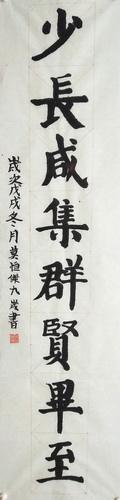 少長咸集群賢畢至
歲次戊戌冬月莫恒傑九歲書